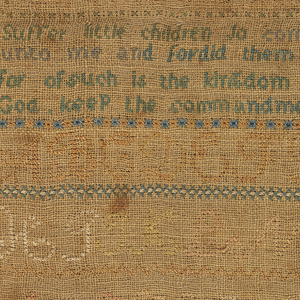 Suffer little children to com
unto me and fordid them
for ofsuch is the kingdom
God keep the commandme